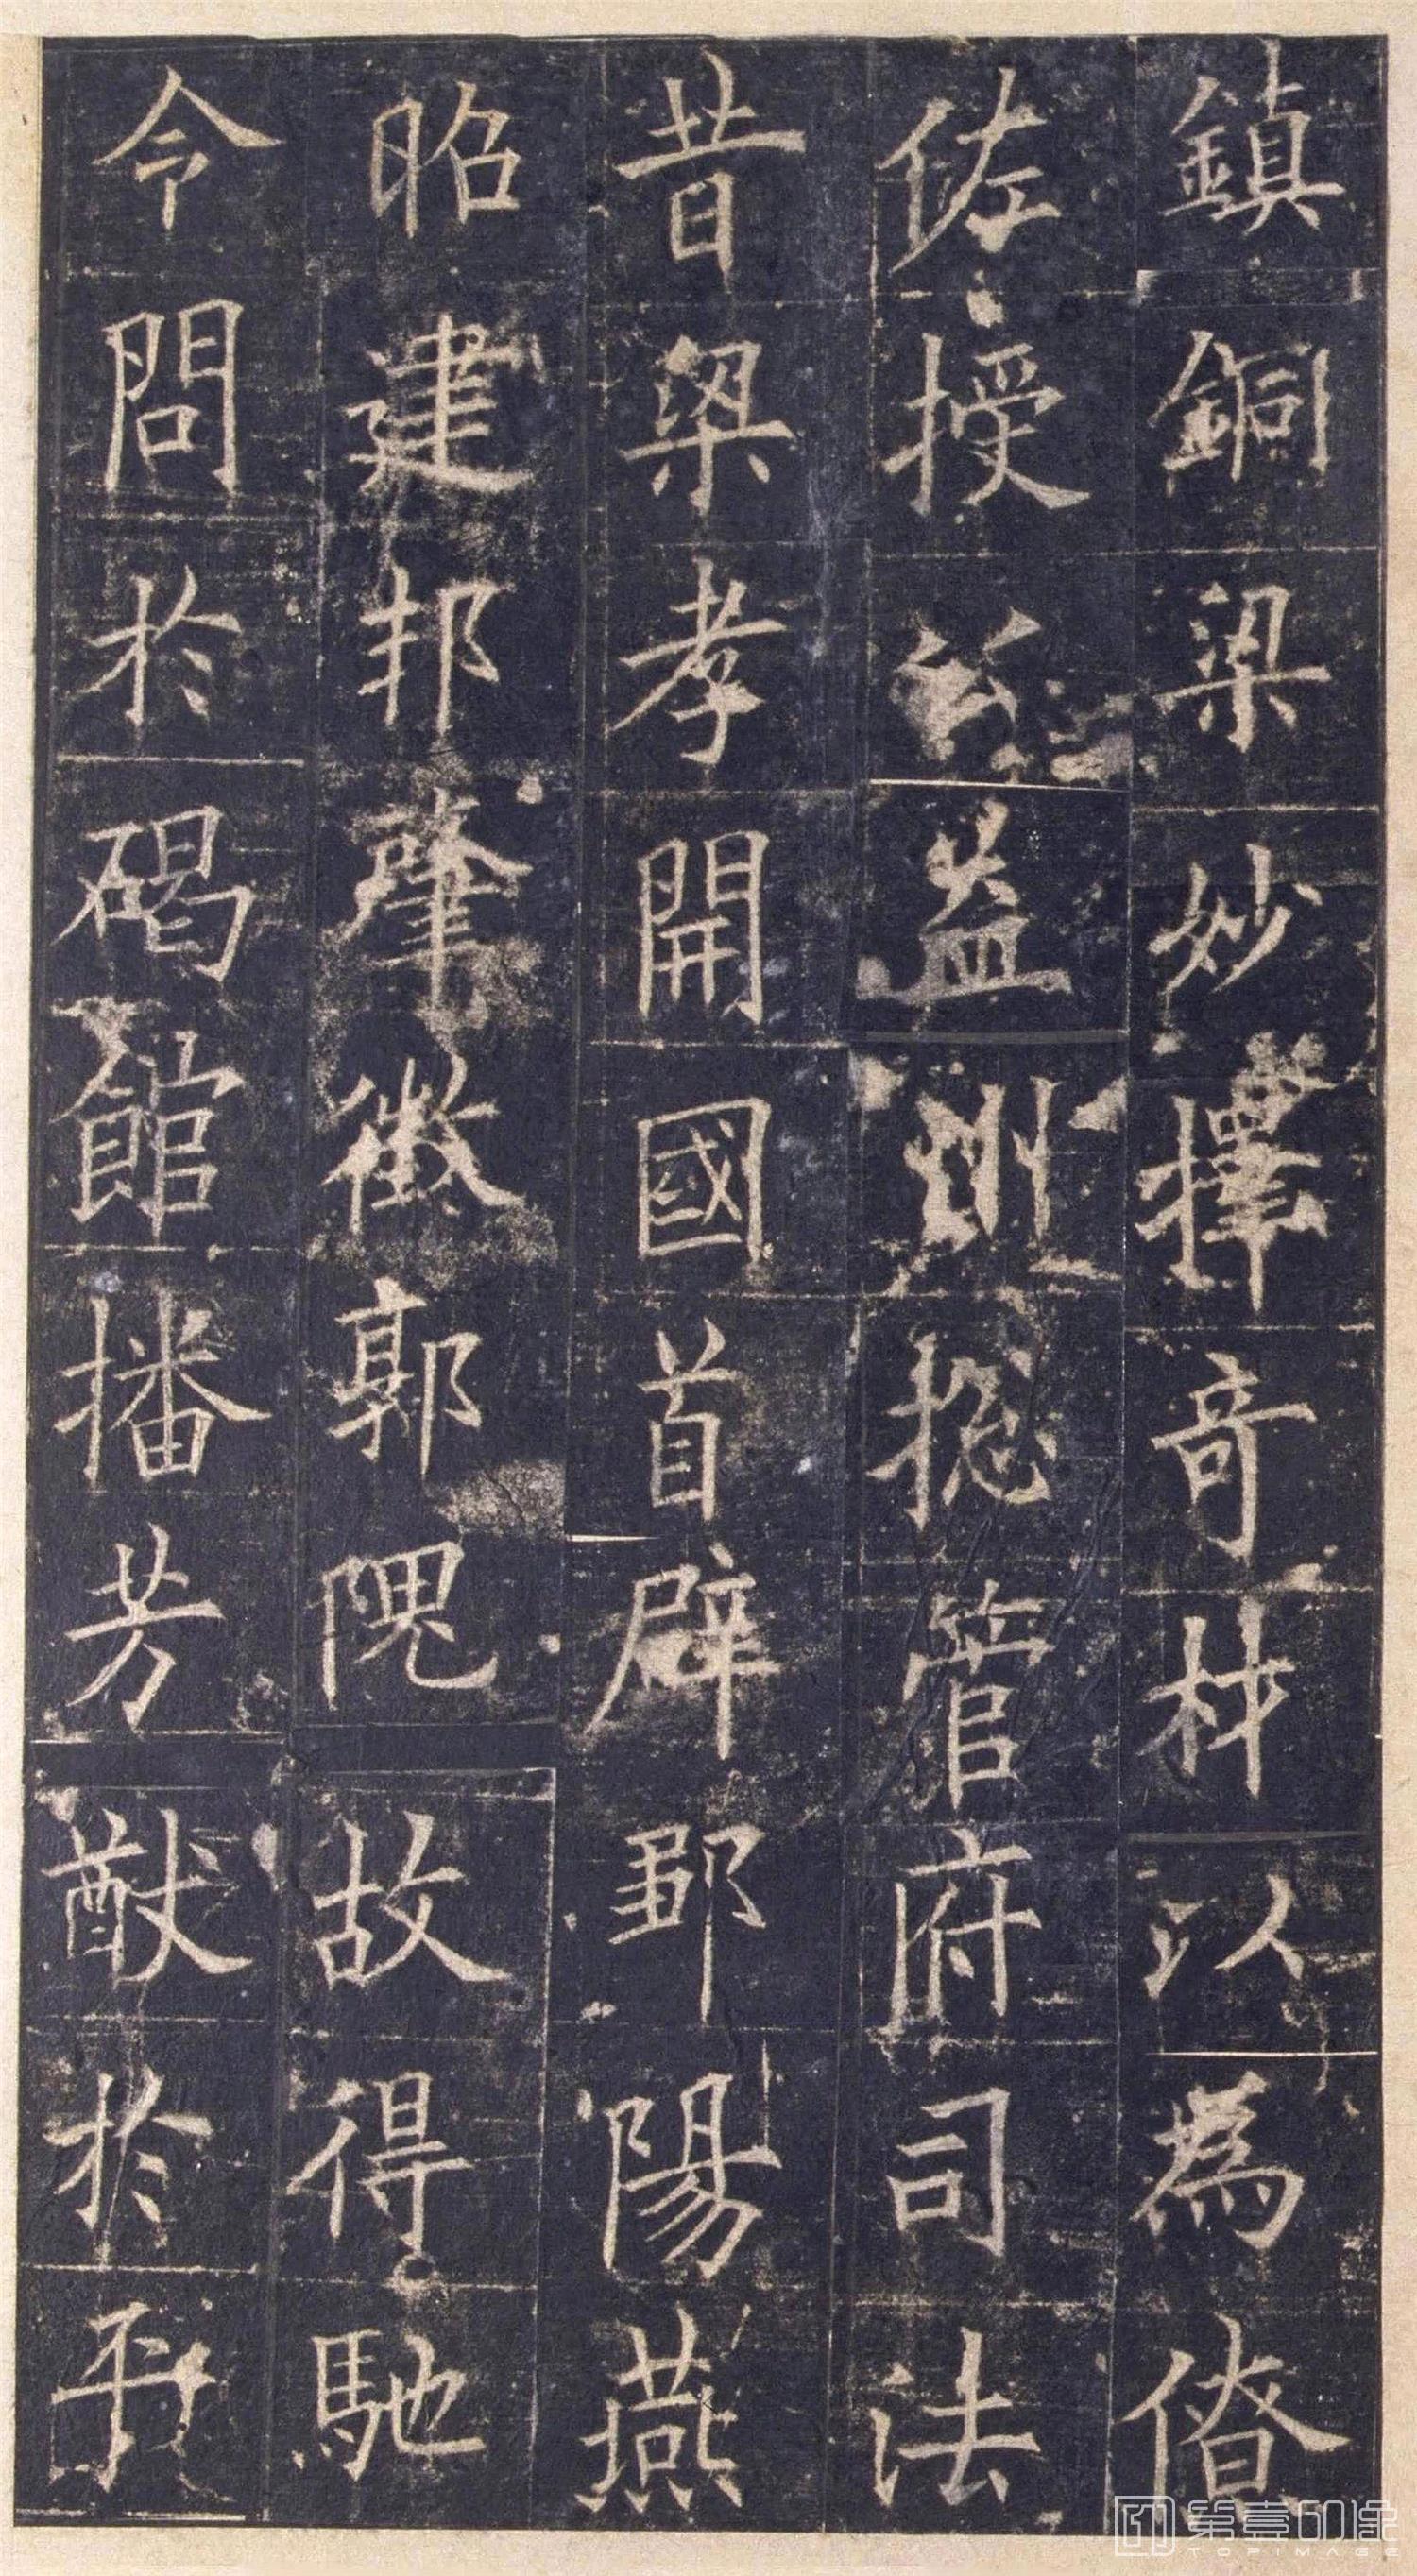 鎮銅梁妙擇奇材以為僚
佐授公益州總管府司法
昔梁孝開國首辟鄒陽燕
昭建邦肇徵郭隗故得馳
令問於碣館播芳猷於平
第壹印像
TOPIMAGE